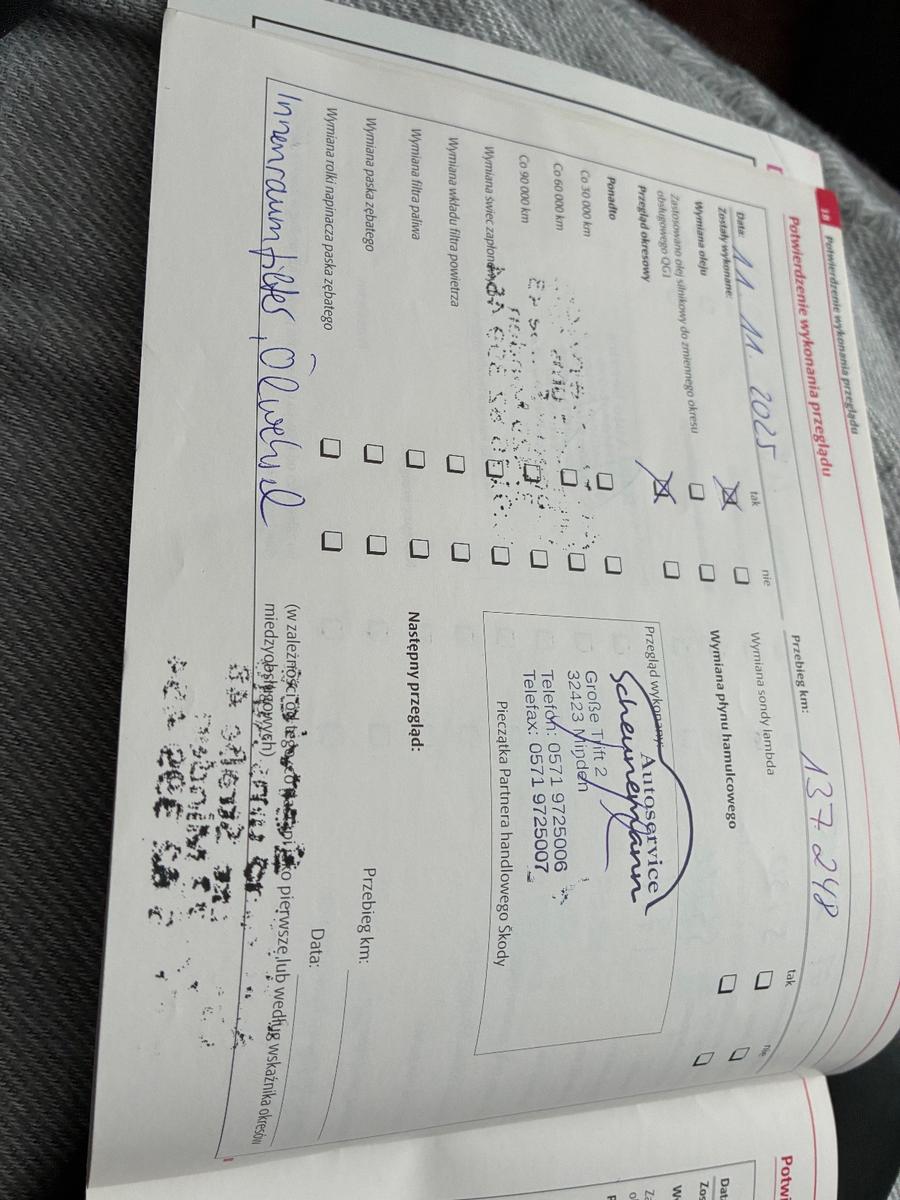 38 Potwierdzenie wykonania przeglądu
Potwierdzenie wykonania przeglądu
Data: 11. 11. 2025
Przebieg km: 137.248
Zostały wykonane:
tak
nie
tak
nie
Wymiana oleju
Zastosowano olej silnikowy do zmiennego okresu
obsługowego QG1
Przegląd okresowy
Ponadto
Co 30 000 km
Co 60 000 km
Co 90 000 km
Wymiana świec zapłonowych
Wymiana wkładu filtra powietrza
Wymiana filtra paliwa
Wymiana paska zębatego
Wymiana rolki napinacza paska zębatego
Innenraumfilter, Ölwechsel
Wymiana sondy lambda
Wymiana płynu hamulcowego
Przegląd wykonany:
Autoservice
Scheunemann
Große Trift 2
32423 Minden
Telefon: 0571 9725006
Telefax: 0571 9725007
Pieczątka Partnera handlowego Škody
Następny przegląd:
Przebieg km:
Data:
(w zależności od tego, co nastąpi jako pierwsze, lub według wskaźnika okresów
międzyobsługowych)